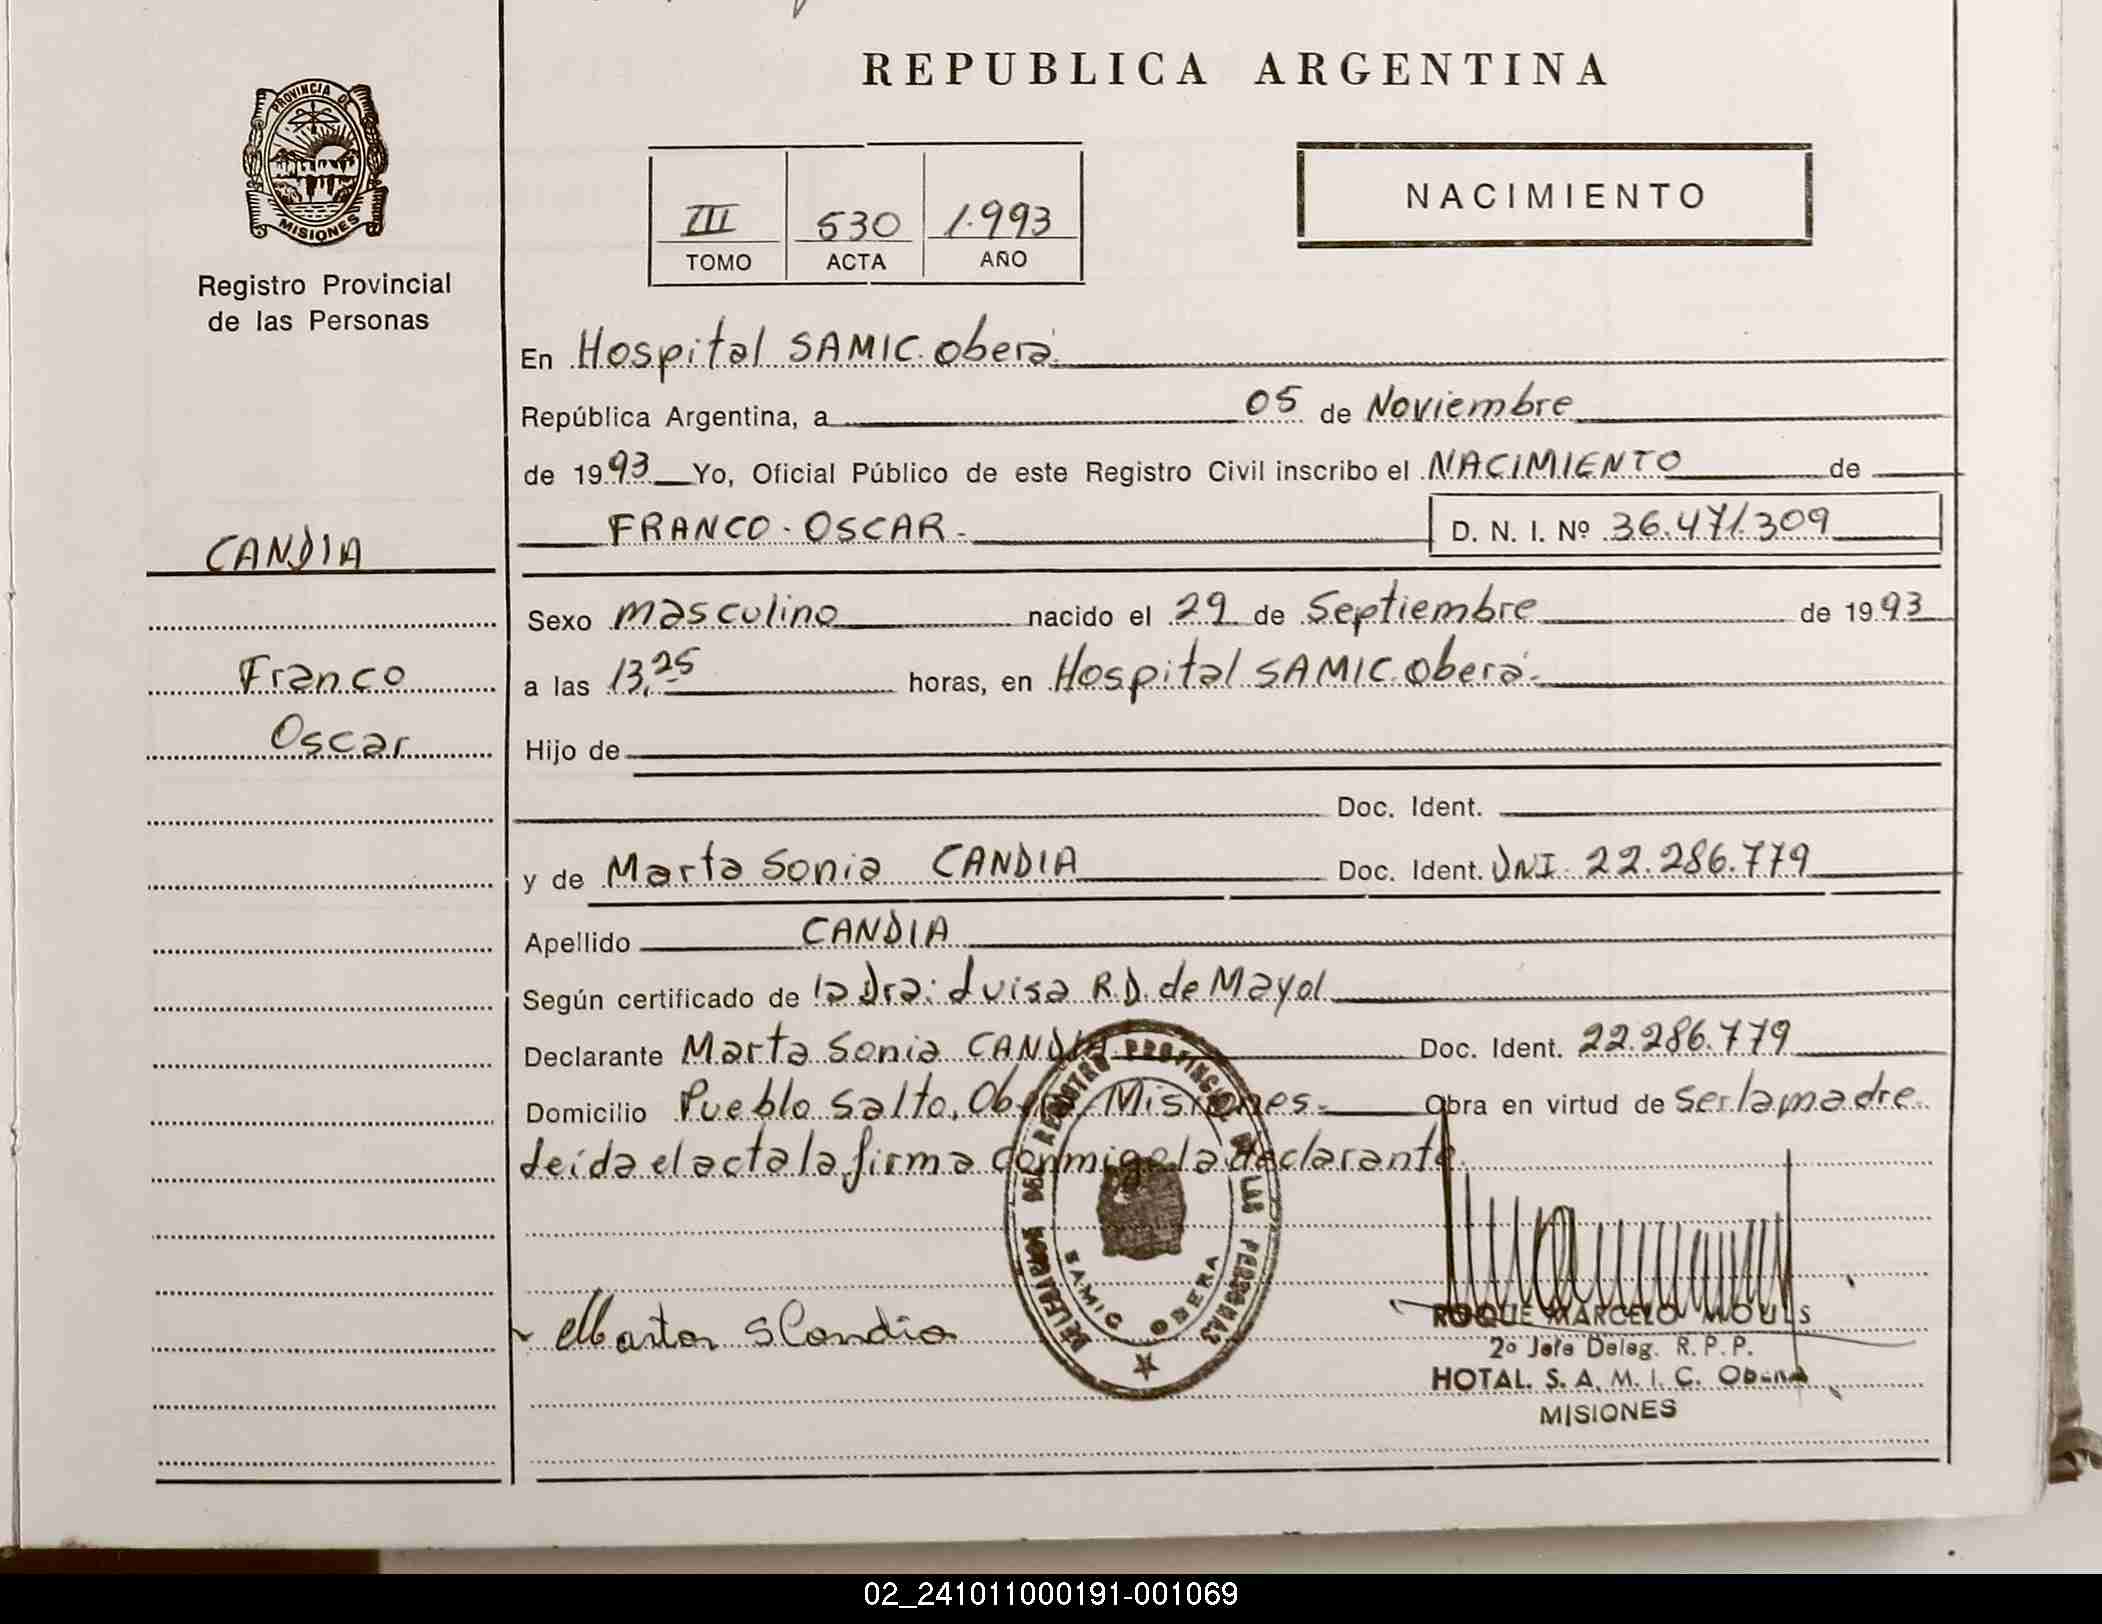 REPUBLICA ARGENTINA
PROVINCIA DE
MISIONES
Registro Provincial
de las Personas
III 530 1.993
TOMO ACTA AÑO
NACIMIENTO
En Hospital SAMIC. Oberá
República Argentina, a 05 de Noviembre
de 1993 Yo, Oficial Público de este Registro Civil inscribo el NACIMIENTO de
FRANCO - OSCAR - D. N. I. Nº 36.471.309
CANDIA
Franco
Oscar
Sexo masculino nacido el 29 de Septiembre de 1993
a las 13,25 horas, en Hospital SAMIC. Oberá-
Hijo de
Doc. Ident.
y de Marta Sonia CANDIA Doc. Ident. DNI. 22.286.779
Apellido CANDIA
Según certificado de la Dra: Luisa R.D. de Mayol
Declarante Marta Sonia CANDIA Doc. Ident. 22.286.779
Domicilio Pueblo Salto, Oberá, Misiones.- Obra en virtud de ser la madre.
Leída el acta la firma conmigo la declarante.
DEL REGISTRO PROVINCIAL DE LAS PERSONAS
SAMIC OBERA
Marta S Candia
ROQUE MARCELO
2º Jefe Deleg. R. P. P.
HOTAL. S. A. M. I. C. Obera
MISIONES
02_241011000191-001069